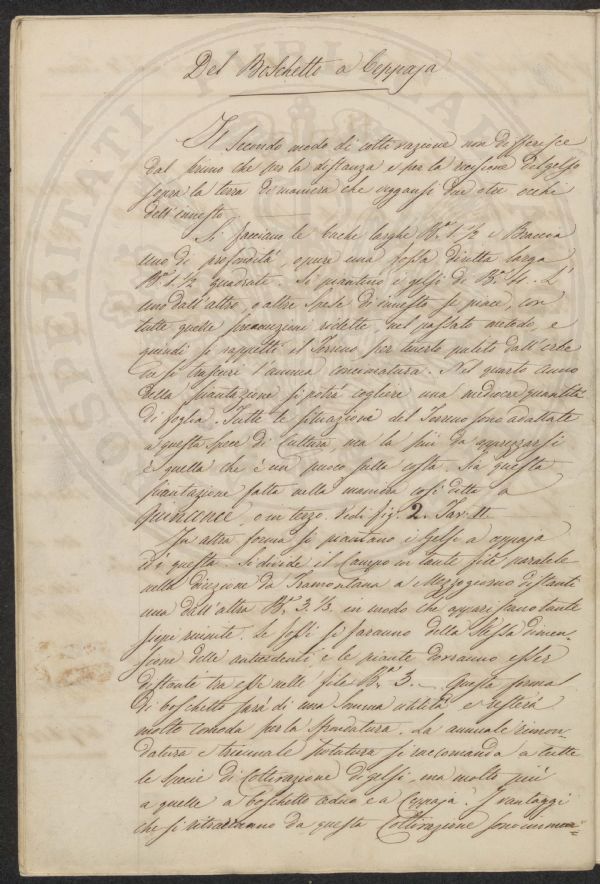 Del Boschetto a Ceppaja
Il Secondo modo di coltivazione non differisce
dal primo che per la distanza e per la recisione del gelso
sopra la terra di maniera che veggansi due otre occhi
dell'innesto.
Si facciano le buche larghe B.ª 1 ½ e Braccia
uno di profondità opure una fossa diritta larga
B.ª 1. ½ quadrate. Si piantino i gelsi di B.ª 4. L'
uno dall'altro, o altre Spese di innesto si piace, con
tutte quelle precauzioni ridette, nel passato metodo, e
quindi si rappetti il Terreno per tenerlo pulito dall'erbe
ne si trascuri l'annua concimatura. Nel quarto anno
della piantazione si potrà cogliere una mediocre quantità
di foglia. Tutte le situazione del Terreno sono adattate
a questa spece di Cultura, ma la più da apprezzarsi
è quella che è un puoco sulla costa. Sia questa
piantazione fatta nella maniera così ditta a
quinconce, o in terzo. Vedi fig. 2. Tav. II.
In altra forma si piantano i gelsi a ceppaja
ed è questa. Si divide il Campo in tante file paralele
nella direzione da Tramontana a Mezzogiorno distanti
una dall'altra B.ª 3. ⅓ in modo che apparischano tante
siepi riunite. Le fossi si faranno della Stessa dimen-
sione delle antecedenti, e le piante dovranno esser
distanti tra esse nelle file B.ª 3. Questa forma
di boschetto sarà di una somma utilità e resterà
molto comoda per la sfrondatura. La annuale rimon-
datura e triennale potatura si raccomanda a tutte
le specie di Coltivazione di gelsi, ma molto più
a quelle a boschetto ceduo e a Ceppaja. I vantaggi
che si ritrarranno da questa Coltivazione sono innum=